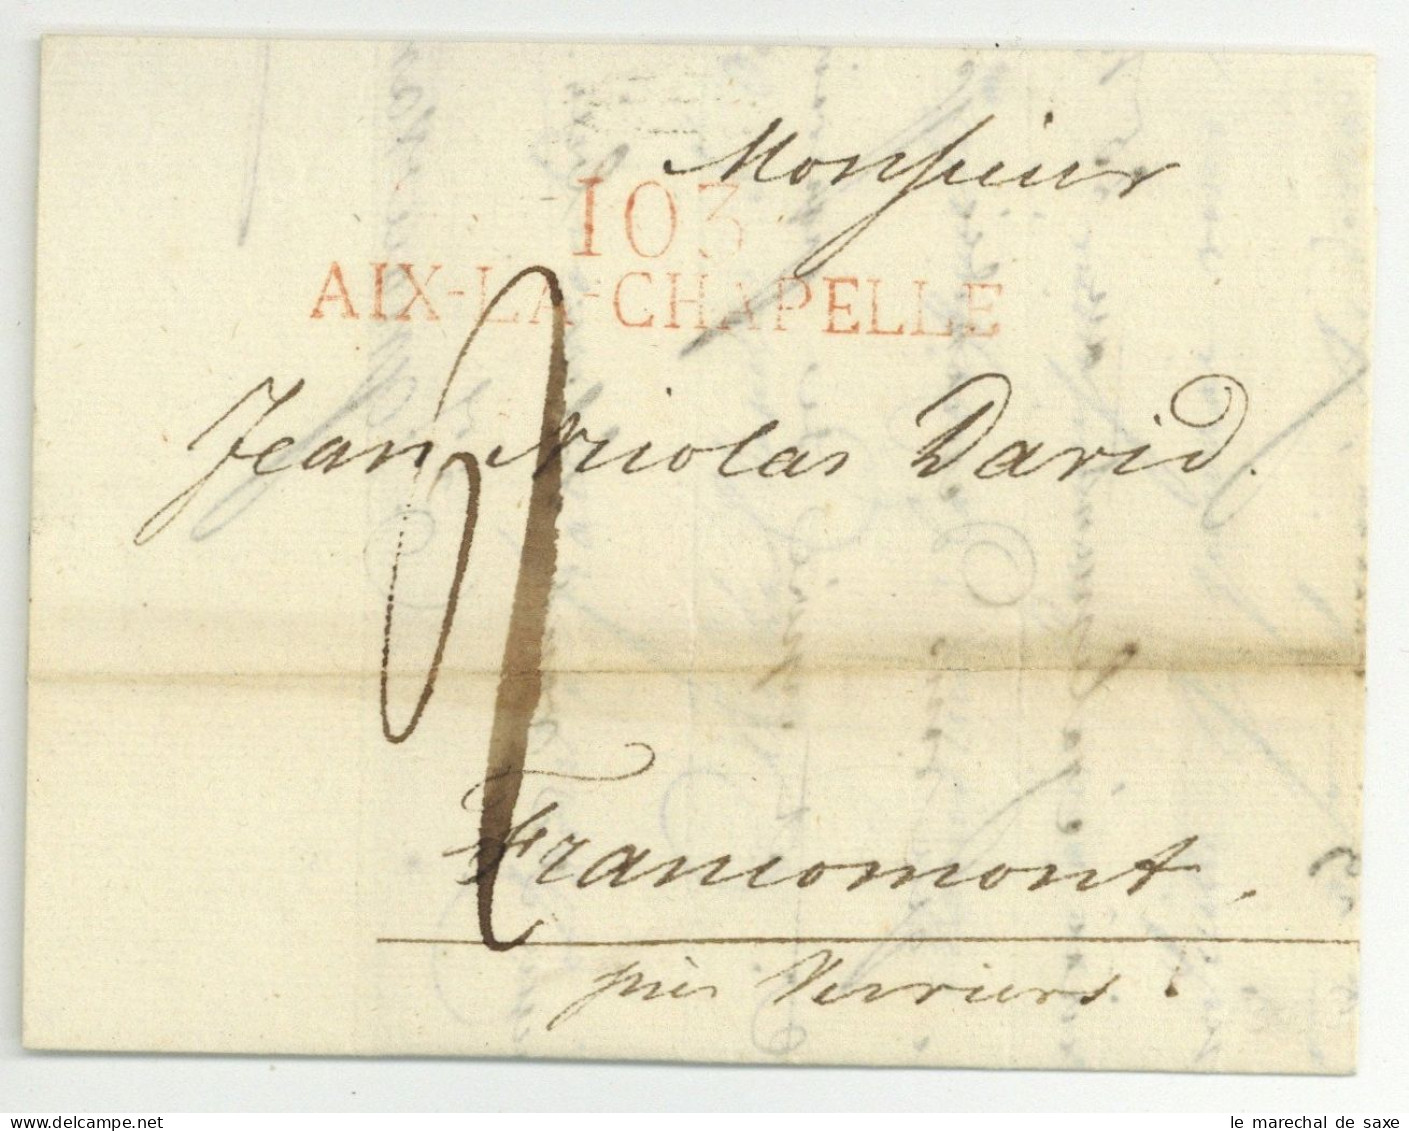 Monsieur
103
AIX-LA-CHAPELLE
Jean Nicolas David.
Francomont,
près Verviers.
le marechal de saxe